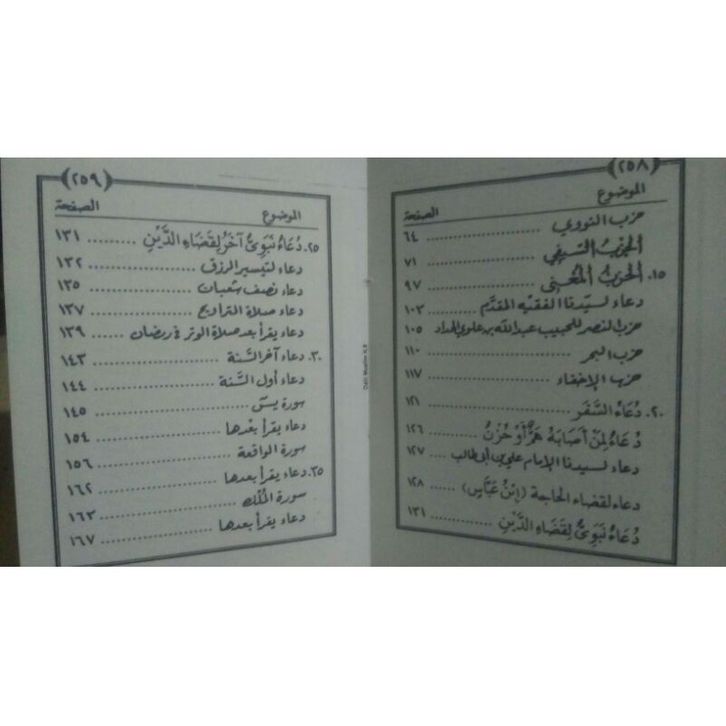 (٢٥٨)
الموضوع الصفحة
حزب النووي ........ ٦٤
الحِزْبُ السَّيْفِي ........ ٧١
١٥. الحِزْبُ المُغْنِى ........ ٩٧
دعاء لسيّدنا الفقيه المقدّم ........ ١٠٣
حزب النصر للحبيب عبد الله بن علوي الحداد ١٠٥
حزب البحر ........ ١١٠
حزب الإخفاء ........ ١١٧
٢٠. دُعَاءُ السَّفَر ........ ١٢١
دُعَاءُ لِمَنْ أَصَابَهُ هَمٌّ أَوْ حُزْنٌ ١٢٦
دعاء لسيدنا الإمام علي بن أبي طالب ١٢٧
دعاء لقضاء الحاجة (ابْنُ عَبَّاسِ) ........ ١٢٨
دُعَاءٌ نَبَوِىٌّ لِقَضَاءِ الدَّيْنِ ........ ١٣١
(٢٥٩)
الموضوع الصفحة
٢٥. دُعَاءٌ نَبَوِىٌّ آخَرُ لِقَضَاءِ الدَّيْنِ ........ ١٣١
دعاء لتيسير الرزق ........ ١٣٢
دعاء نصف شعبان ........ ١٣٥
دعاء صلاة التراويح ........ ١٣٧
دعاء يقرأ بعد صلاة الوتر في رمضان ........ ١٣٩
٣٠. دعاء آخر السَّنة ........ ١٤٣
دعاء أول السَّنة ........ ١٤٤
سورة يسٓ ........ ١٤٥
دعاء يقرأ بعدها ........ ١٥٤
سورة الواقعة ........ ١٥٦
٣٥. دعاء يقرأ بعدها ........ ١٦٢
سورة المُلك ........ ١٦٣
دعاء يقرأ بعدها ........ ١٦٧